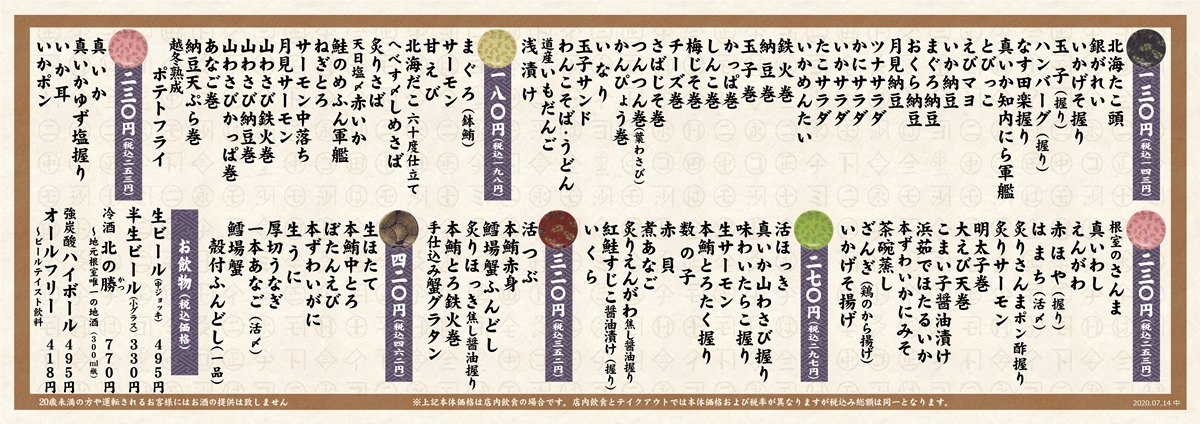 一三〇円(税込一四三円)
北海たこ頭
銀がれい
いかげそ握り
玉子(握り)
ハンバーグ(握り)
なす田楽握り
真いか知内にら軍艦
とびっこ
えびマヨ
いか納豆
まぐろ納豆
おくら納豆
月見納豆
ツナサラダ
かにサラダ
いかサラダ
たこサラダ
いかめんたい
鉄火巻
納豆巻
玉子巻
かっぱ巻
しんこ巻
梅じそ巻
チーズ巻
さばじそ巻
つんつん巻(葉わさび)
かんぴょう巻
いなり
玉子サンド
わんこそば・うどん
道産いもだんご
浅漬け
一八〇円(税込一九八円)
まぐろ(鉢鮪)
サーモン
甘えび
北海だこ六十度仕立て
へべす〆しめさば
炙りさば
天日塩〆赤いか
鮭のめふん軍艦
ねぎとろ
サーモン中落ち
月見サーモン
山わさび鉄火巻
山わさび納豆巻
山わさびかっぱ巻
あなご巻
納豆天ぷら巻
越冬熟成
ポテトフライ
二三〇円(税込二五三円)
真いか
真いかゆず塩握り
いか耳
いかポン
二三〇円(税込二五三円)
根室のさんま
真いわし
えんがわ
赤ほや(握り)
はまち(活〆)
炙りさんまポン酢握り
炙りサーモン
明太子巻
大えび天巻
こまい子醤油漬け
浜茹でほたるいか
本ずわいかにみそ
茶碗蒸し
ざんぎ(鶏のから揚げ)
いかげそ揚げ
二七〇円(税込二九七円)
活ほっき
真いか山わさび握り
味わいたらこ握り
生サーモン
本鮪とろたく握り
数の子
赤貝
煮あなご
炙りえんがわ焦し醤油握り
紅鮭すじこ醤油漬け(握り)
いくら
三二〇円(税込三五二円)
活つぶ
本鮪赤身
鱈場蟹ふんどし
炙りほっき焦し醤油握り
本鮪とろ鉄火巻
手仕込み蟹グラタン
四二〇円(税込四六二円)
生ほたて
本鮪中とろ
ぼたんえび
本ずわいがに
生うに
厚切うなぎ
一本あなご(活〆)
鱈場蟹
殻付ふんどし(一品)
お飲物(税込価格)
生ビール(中ジョッキ) 495円
半生ビール(小グラス) 330円
冷酒 北の勝 かつ 770円
〜地元根室唯一の地酒(300ml瓶)
強炭酸ハイボール 495円
オールフリー 418円
〜ビールテイスト飲料
20歳未満の方や運転されるお客様にはお酒の提供は致しません
※上記本体価格は店内飲食の場合です。店内飲食とテイクアウトでは本体価格および税率が異なりますが税込み総額は同一となります。
2020.07.14 中